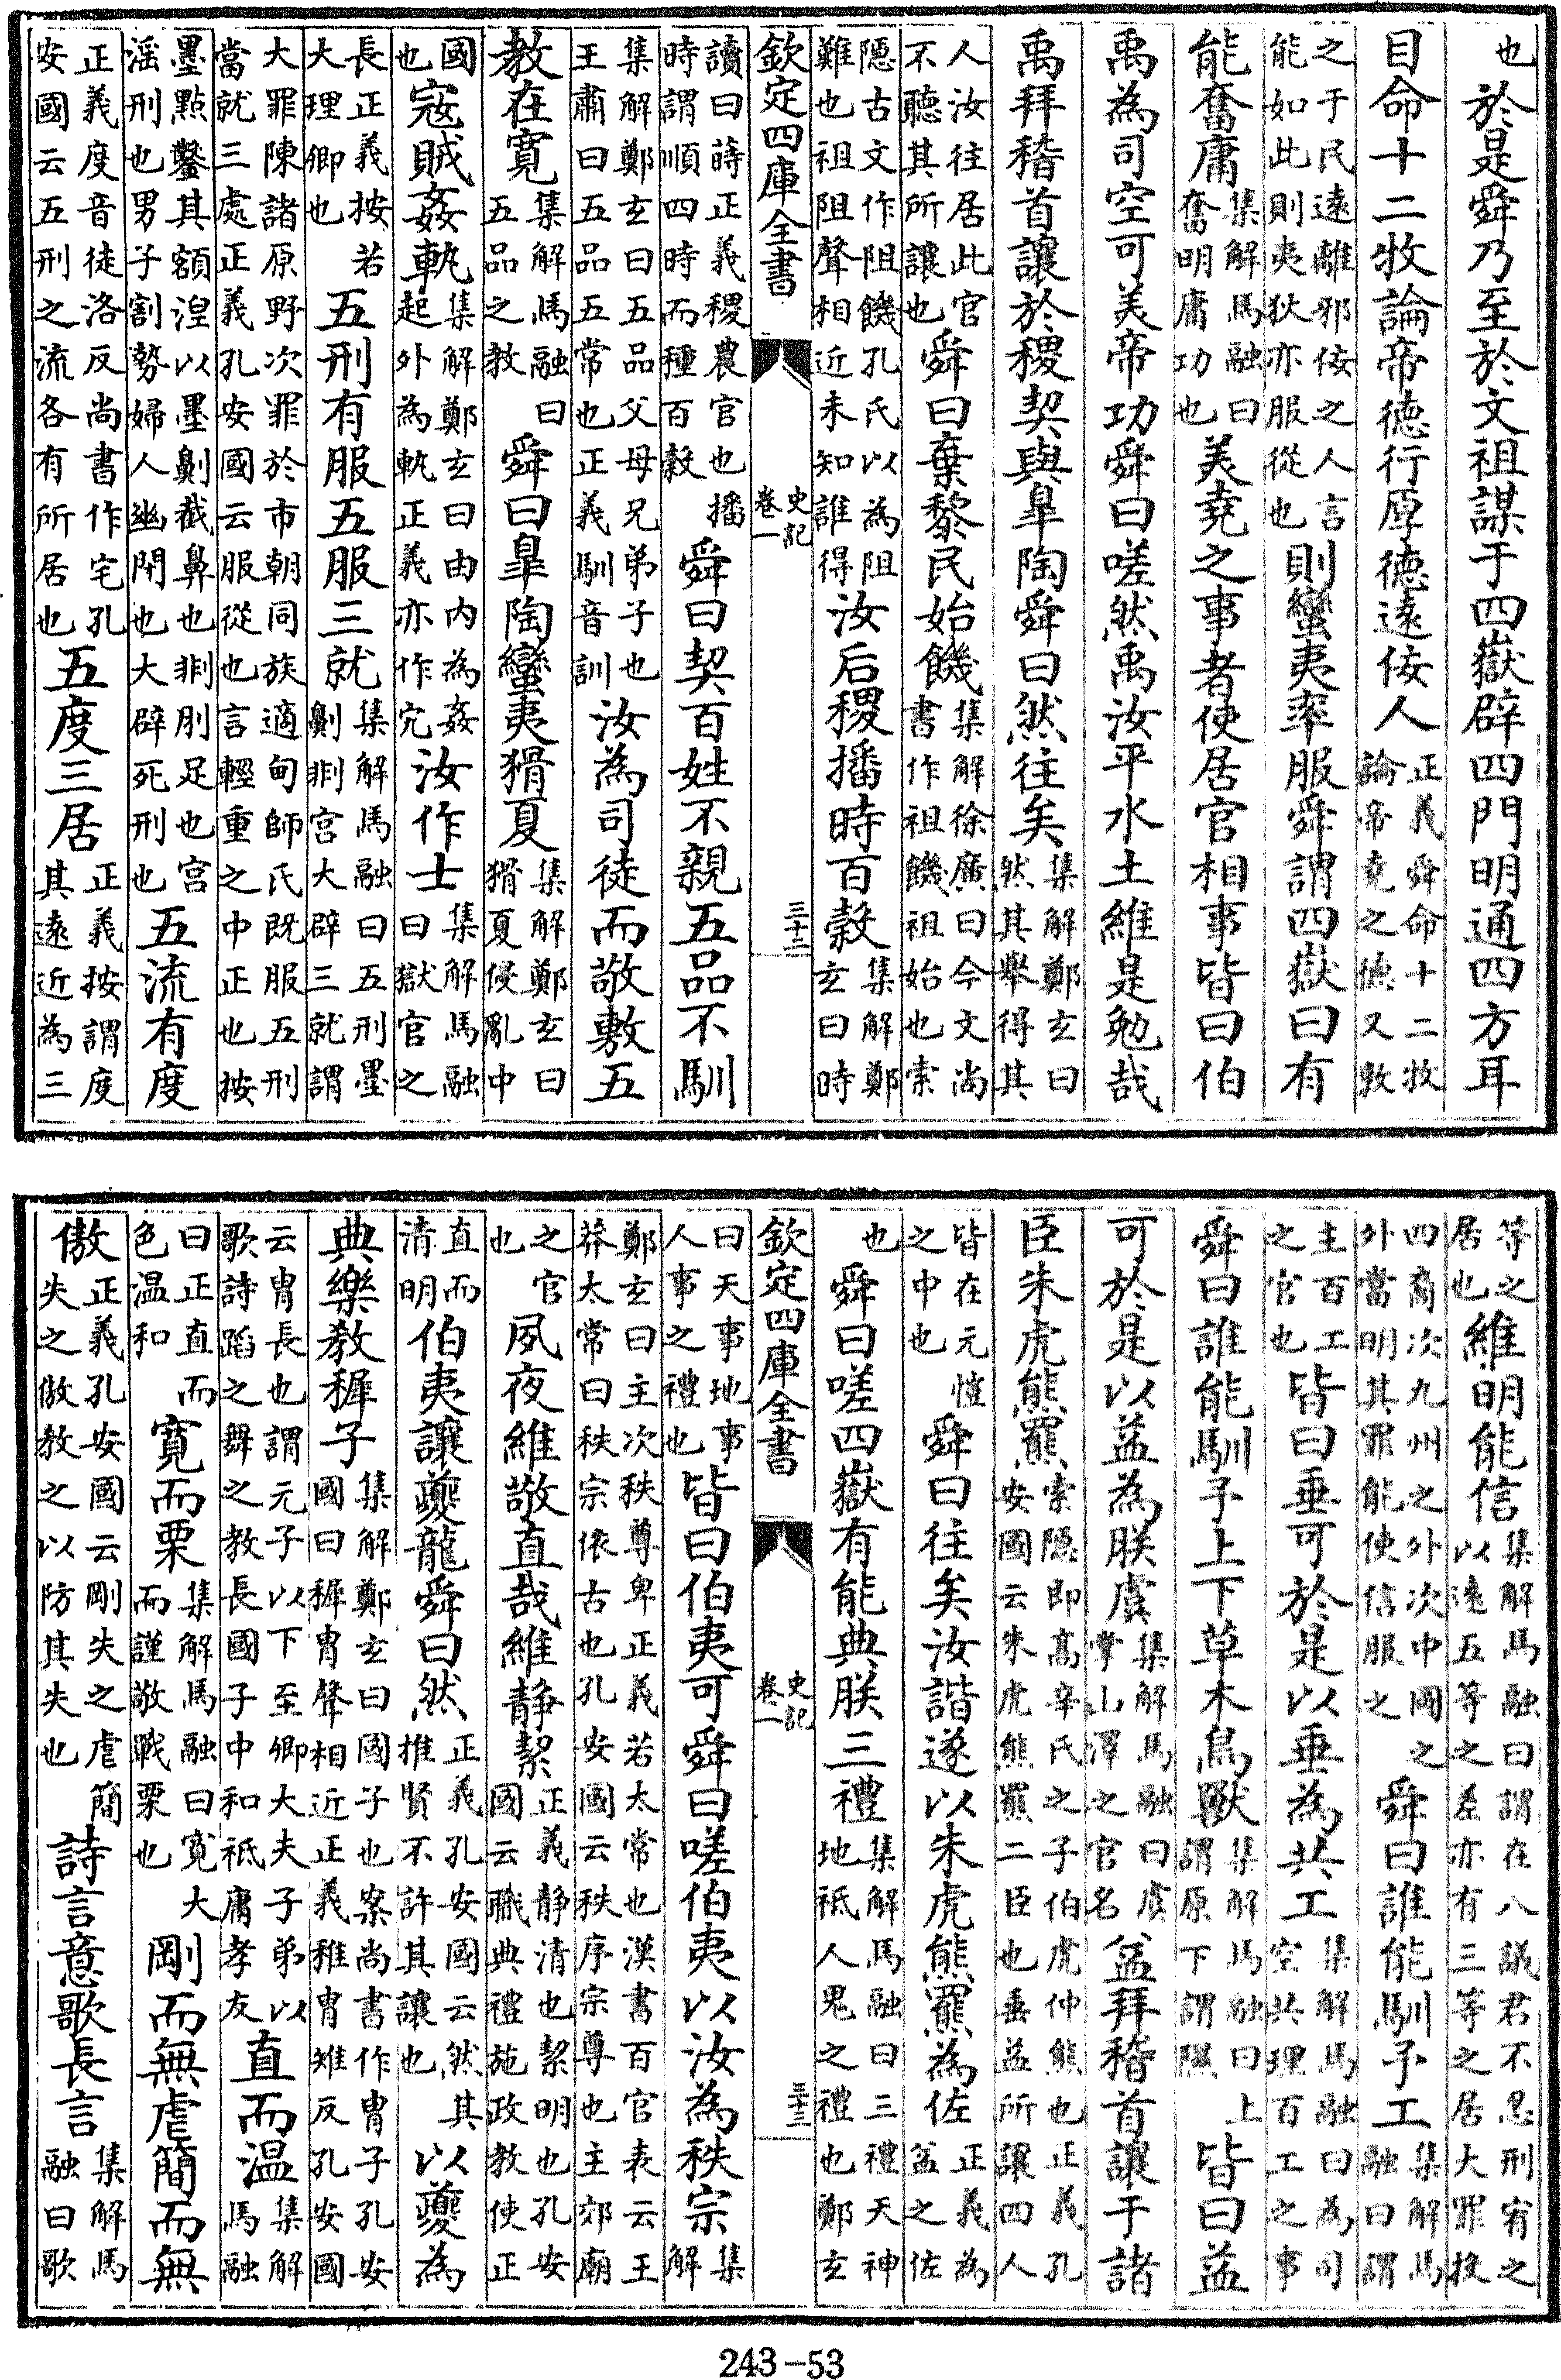 也於是舜乃至於文祖謀于四嶽辟四門明通四方耳
目命十二牧論帝徳行厚徳逺佞人正義舜命十二牧論帝堯之徳又敦
之于民逺離邪佞之人言能如此則夷狄亦服從也則蠻夷率服舜謂四嶽曰有
能奮庸集解馬融曰奮明庸功也美堯之事者使居官相事皆曰伯
禹為司空可美帝功舜曰嗟然禹汝平水土維是勉哉
禹拜稽首讓於稷契與臯陶舜曰然往矣集解鄭玄曰然其舉得其
人汝往居此官不聽其所讓也舜曰棄黎民始饑集解徐廣曰今文尚書作祖饑祖始也索
隠古文作阻饑孔氏以為阻難也祖阻聲相近未知誰得汝后稷播時百榖集解鄭玄曰時
欽定四庫全書 史記卷一 三十二
讀曰蒔正義稷農官也播時謂順四時而種百榖舜曰契百姓不親五品不馴
集解鄭玄曰五品父母兄弟子也王肅曰五品五常也正義馴音訓汝為司徒而敬敷五
教在寛集解馬融曰五品之教舜曰臯陶蠻夷猾夏集解鄭玄曰猾夏侵亂中
國也寇賊姦軌集解鄭玄曰由内為姦起外為軌正義亦作宄汝作士集解馬融曰獄官之
長正義按若大理卿也五刑有服五服三就集解馬融曰五刑墨劓剕宫大辟三就謂
大罪陳諸原野次罪於市朝同族適甸師氏既服五刑當就三處正義孔安國云服從也言輕重之中正也按
墨點鑿其額涅以墨劓截鼻也剕刖足也宫淫刑也男子割勢婦人幽閉也大辟死刑也五流有度
正義度音徒洛反尚書作宅孔安國云五刑之流各有所居也五度三居正義按謂度其逺近為三
等之居也維明能信集解馬融曰謂在八議君不忍刑宥之以逺五等之差亦有三等之居大罪投
四裔次九州之外次中國之外當明其罪能使信服之舜曰誰能馴予工集解馬融曰謂
主百工之官也皆曰垂可於是以垂為共工集解馬融曰為司空共理百工之事
舜曰誰能馴予上下草木鳥獸集解馬融曰上謂原下謂隰皆曰益
可於是以益為朕虞集解馬融曰虞掌山澤之官名益拜稽首讓于諸
臣朱虎熊羆索隠即髙辛氏之子伯虎仲熊也正義孔安國云朱虎熊羆二臣也垂益所讓四人
皆在元愷之中也舜曰往矣汝諧遂以朱虎熊羆為佐正義為益之佐
也舜曰嗟四嶽有能典朕三禮集解馬融曰三禮天神地祗人鬼之禮也鄭玄
欽定四庫全書 史記卷一 三十三
曰天事地事人事之禮也皆曰伯夷可舜曰嗟伯夷以汝為秩宗集解
鄭玄曰主次秩尊卑正義若太常也漢書百官表云王莽太常曰秩宗依古也孔安國云秩序宗尊也主郊廟
之官也夙夜維敬直哉維静絜正義静清也絜明也孔安國云職典禮施政教使正
直而清明伯夷讓夔龍舜曰然正義孔安國云然其推賢不許其讓也以夔為
典樂教穉子集解鄭玄曰國子也案尚書作胄子孔安國曰穉胄聲相近正義稚胄雉反孔安國
云胄長也謂元子以下至卿大夫子弟以歌詩蹈之舞之教長國子中和祗庸孝友直而温集解馬融
曰正直而色温和寛而栗集解馬融曰寛大而謹敬戰栗也剛而無虐簡而無
傲正義孔安國云剛失之虐簡失之傲教之以防其失也詩言意歌長言集解馬融曰歌
243-53